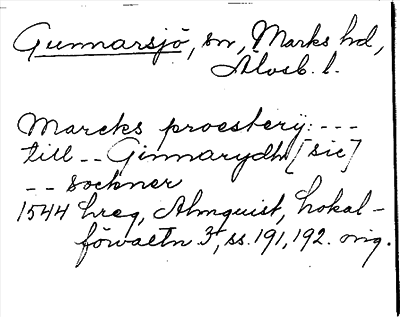 Gunnarsjö, sn, Marks hd,
Älvsb. l.
Marcks proestery: ---
till -- Ginnarydh [sic]
-- sockner
1544 hreg, Almquist, Lokal-
förvaltn 3, ss. 191, 192. orig.